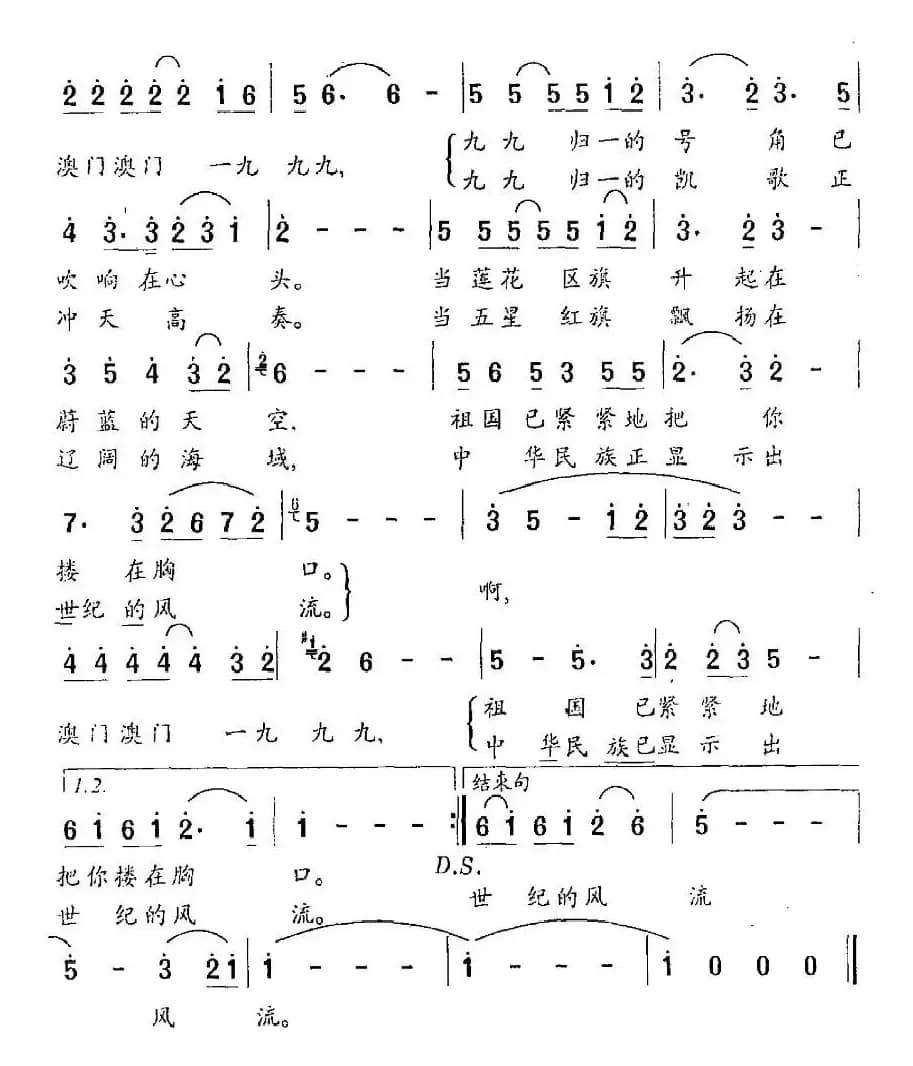 2 2 2 2 2 1 6 | 5 6· 6 - | 5 5 5 5 1 2 | 3· 2 3· 5 |
澳门澳门 一九 九九, 九九 归一的号 角已
九九 归一的凯 歌正
4 3· 3 2 3 1 | 2 - - - | 5 5 5 5 5 1 2 | 3· 2 3 - |
吹响在心 头。 当莲花 区旗 升 起在
冲天 高 奏。 当五星 红旗 飘 扬在
3 5 4 3 2 | 2 6 - - - | 5 6 5 3 5 5 | 2· 3 2 - |
蔚蓝的天 空, 祖国已紧紧地把 你
辽阔的海 域, 中 华民族正显 示出
7· 3 2 6 7 2 | 5 - - - | 3 5 - 1 2 | 3 2 3 - - |
搂 在胸 口。 啊,
世纪的风 流。
4 4 4 4 4 3 2 | #1 2 6 - - | 5 - 5· 3 | 2 2 3 5 - |
澳门澳门 一九 九九, 祖 国 已紧紧 地
中 华民族已显示 出
1.2. 结束句
6 1 6 1 2· 1 | 1 - - - :| 6 1 6 1 2 6 | 5 - - - |
把你搂在胸 口。 D.S.
世 纪的风 流。 世 纪的风 流
5 - 3 2 1 | 1 - - - | 1 - - - | 1 0 0 0 ‖
风 流。